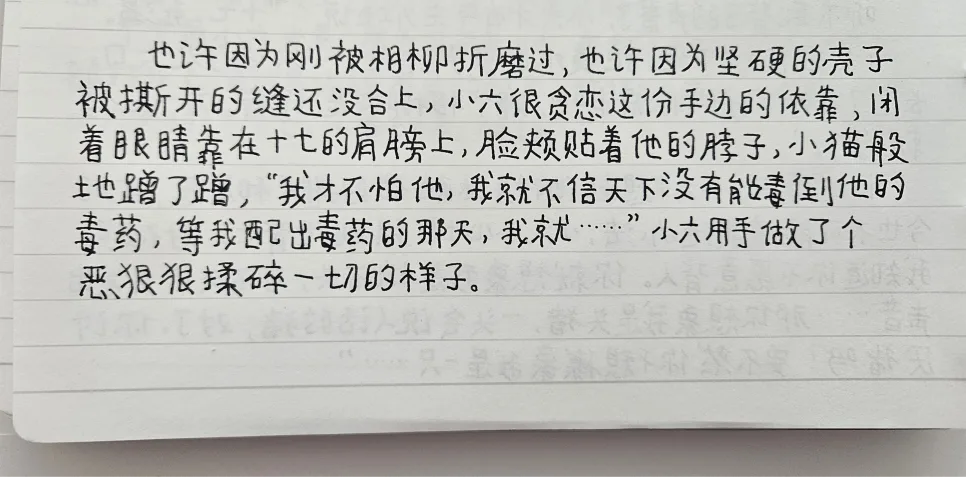 也许因为刚被相柳折磨过，也许因为坚硬的壳子
被撕开的缝还没合上，小六很贪恋这份手边的依靠，闭
着眼睛靠在十七的肩膀上，脸颊贴着他的脖子，小猫般
地蹭了蹭，“我才不怕他，我就不信天下没有能毒倒他的
毒药，等我配出毒药的那天，我就……”小六用手做了个
恶狠狠揉碎一切的样子。